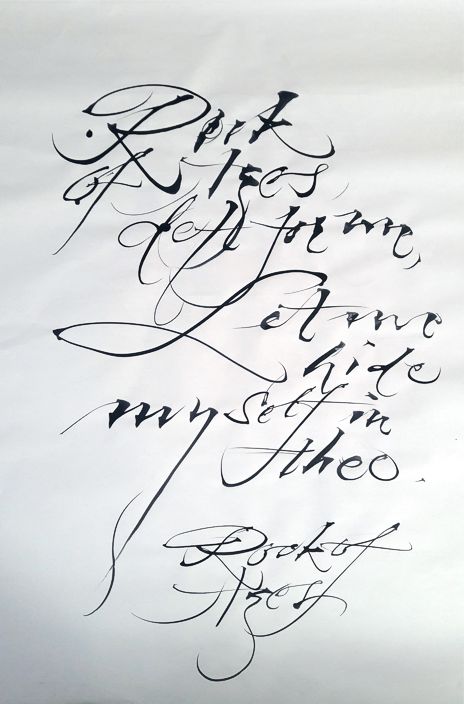 Rock
of Ages,
cleft for me,
Let me
hide
myself in
thee.
Rock of
Ages